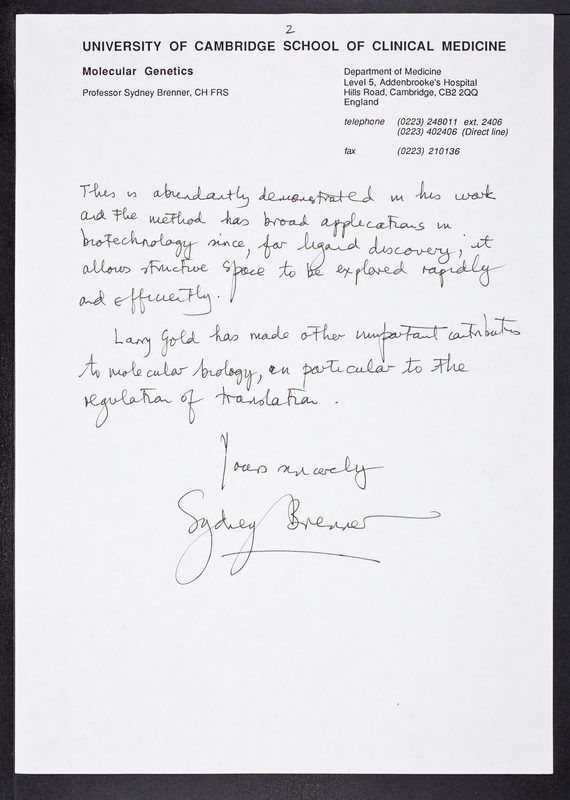 2
UNIVERSITY OF CAMBRIDGE SCHOOL OF CLINICAL MEDICINE
Molecular Genetics
Professor Sydney Brenner, CH FRS
Department of Medicine
Level 5, Addenbrooke's Hospital
Hills Road, Cambridge, CB2 2QQ
England
telephone (0223) 248011 ext. 2406
(0223) 402406 (Direct line)
fax (0223) 210136
This is abundantly demonstrated in his work
and the method has broad applications in
biotechnology since, for ligand discovery, it
allows structure space to be explored rapidly
and efficiently.
Larry Gold has made other important contributions
to molecular biology, in particular to the
regulation of translation.
Yours sincerely
Sydney Brenner